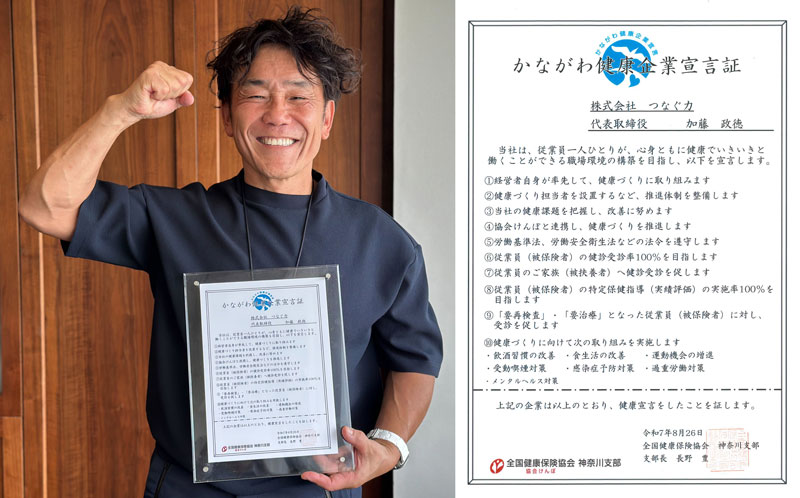 かながわ健康企業宣言証
株式会社 つなぐ力
代表取締役 加藤 政徳
全国健康保険協会 神奈川支部
協会けんぽ
かながわ健康企業宣言
かながわ健康企業宣言証
株式会社 つなぐ力
代表取締役 加藤 政徳
当社は、従業員一人ひとりが、心身ともに健康でいきいきと
働くことができる職場環境の構築を目指し、以下を宣言します。
①経営者自身が率先して、健康づくりに取り組みます
②健康づくり担当者を設置するなど、推進体制を整備します
③当社の健康課題を把握し、改善に努めます
④協会けんぽと連携し、健康づくりを推進します
⑤労働基準法、労働安全衛生法などの法令を遵守します
⑥従業員（被保険者）の健診受診率100％を目指します
⑦従業員のご家族（被扶養者）へ健診受診を促します
⑧従業員（被保険者）の特定保健指導（実績評価）の実施率100％を
目指します
⑨「要再検査」・「要治療」となった従業員（被保険者）に対し、
受診を促します
⑩健康づくりに向けて次の取り組みを実施します
・飲酒習慣の改善 ・食生活の改善 ・運動機会の増進
・受動喫煙対策 ・感染症予防対策 ・過重労働対策
・メンタルヘルス対策
上記の企業は以上のとおり、健康宣言をしたことを証します。
令和7年8月26日
全国健康保険協会 神奈川支部
支部長 長野 豊
全国健康保険協会 神奈川支部
協会けんぽ